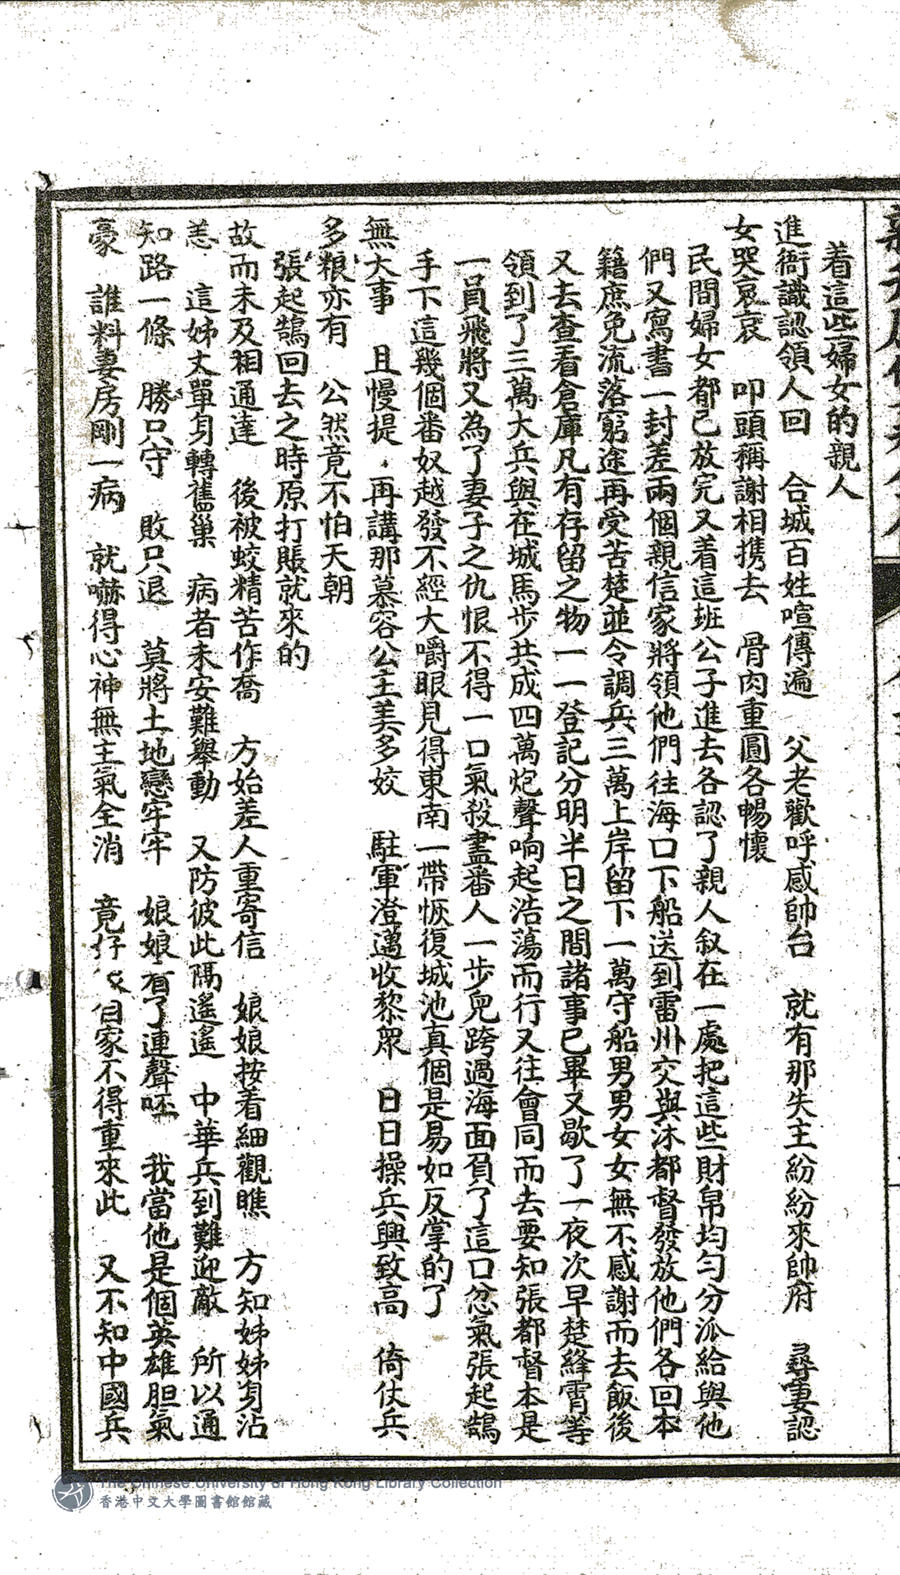 着這些婦女的親人
進衙識認領人回　合城百姓喧傳遍　父老歡呼感帥台　就有那失主紛紛來帥府　尋妻認
女哭哀哀　叩頭稱謝相携去　骨肉重圓各暢懷
民間婦女都已放完又着這班公子進去各認了親人叙在一處把這些財帛均勻分派給與他
們又寫書一封差兩個親信家將領他們往海口下船送到雷州交與沐都督發放他們各回本
籍庶免流落窮途再受苦楚並令調兵三萬上岸留下一萬守船男男女女無不感謝而去飯後
又去查看倉庫凡有存留之物一一登記分明半日之間諸事已畢又歇了一夜次早楚絳霄等
領到了三萬大兵與在城馬步共成四萬炮聲响起浩蕩而行又往會同而去要知張都督本是
一員飛將又為了妻子之仇恨不得一口氣殺盡番人一步兒跨過海面負了這口忿氣張起鵠
手下這幾個番奴越發不經大嚼眼見得東南一帶恢復城池真個是易如反掌的了
無大事　且慢提　再講那慕容公主美多姣　駐軍澄邁收黎眾　日日操兵興致高　倚仗兵
多粮亦有　公然竟不怕天朝
張起鵠回去之時原打賬就來的
故而未及相通達　後被蛟精苦作喬　方始差人重寄信　娘娘按着細觀瞧　方知姊姊身沾
恙　這姊丈單身轉舊巢　病者未安難舉動　又防彼此隔遙遙　中華兵到難迎敵　所以通
知路一條　勝只守　敗只退　莫將土地戀牢牢　娘娘看了連聲呸　我當他是個英雄胆氣
豪　誰料妻房剛一病　就嚇得心神無主氣全消　竟　自家不得重來此　又不知中國兵
The Chinese University of Hong Kong Library Collection
香港中文大學圖書館館藏